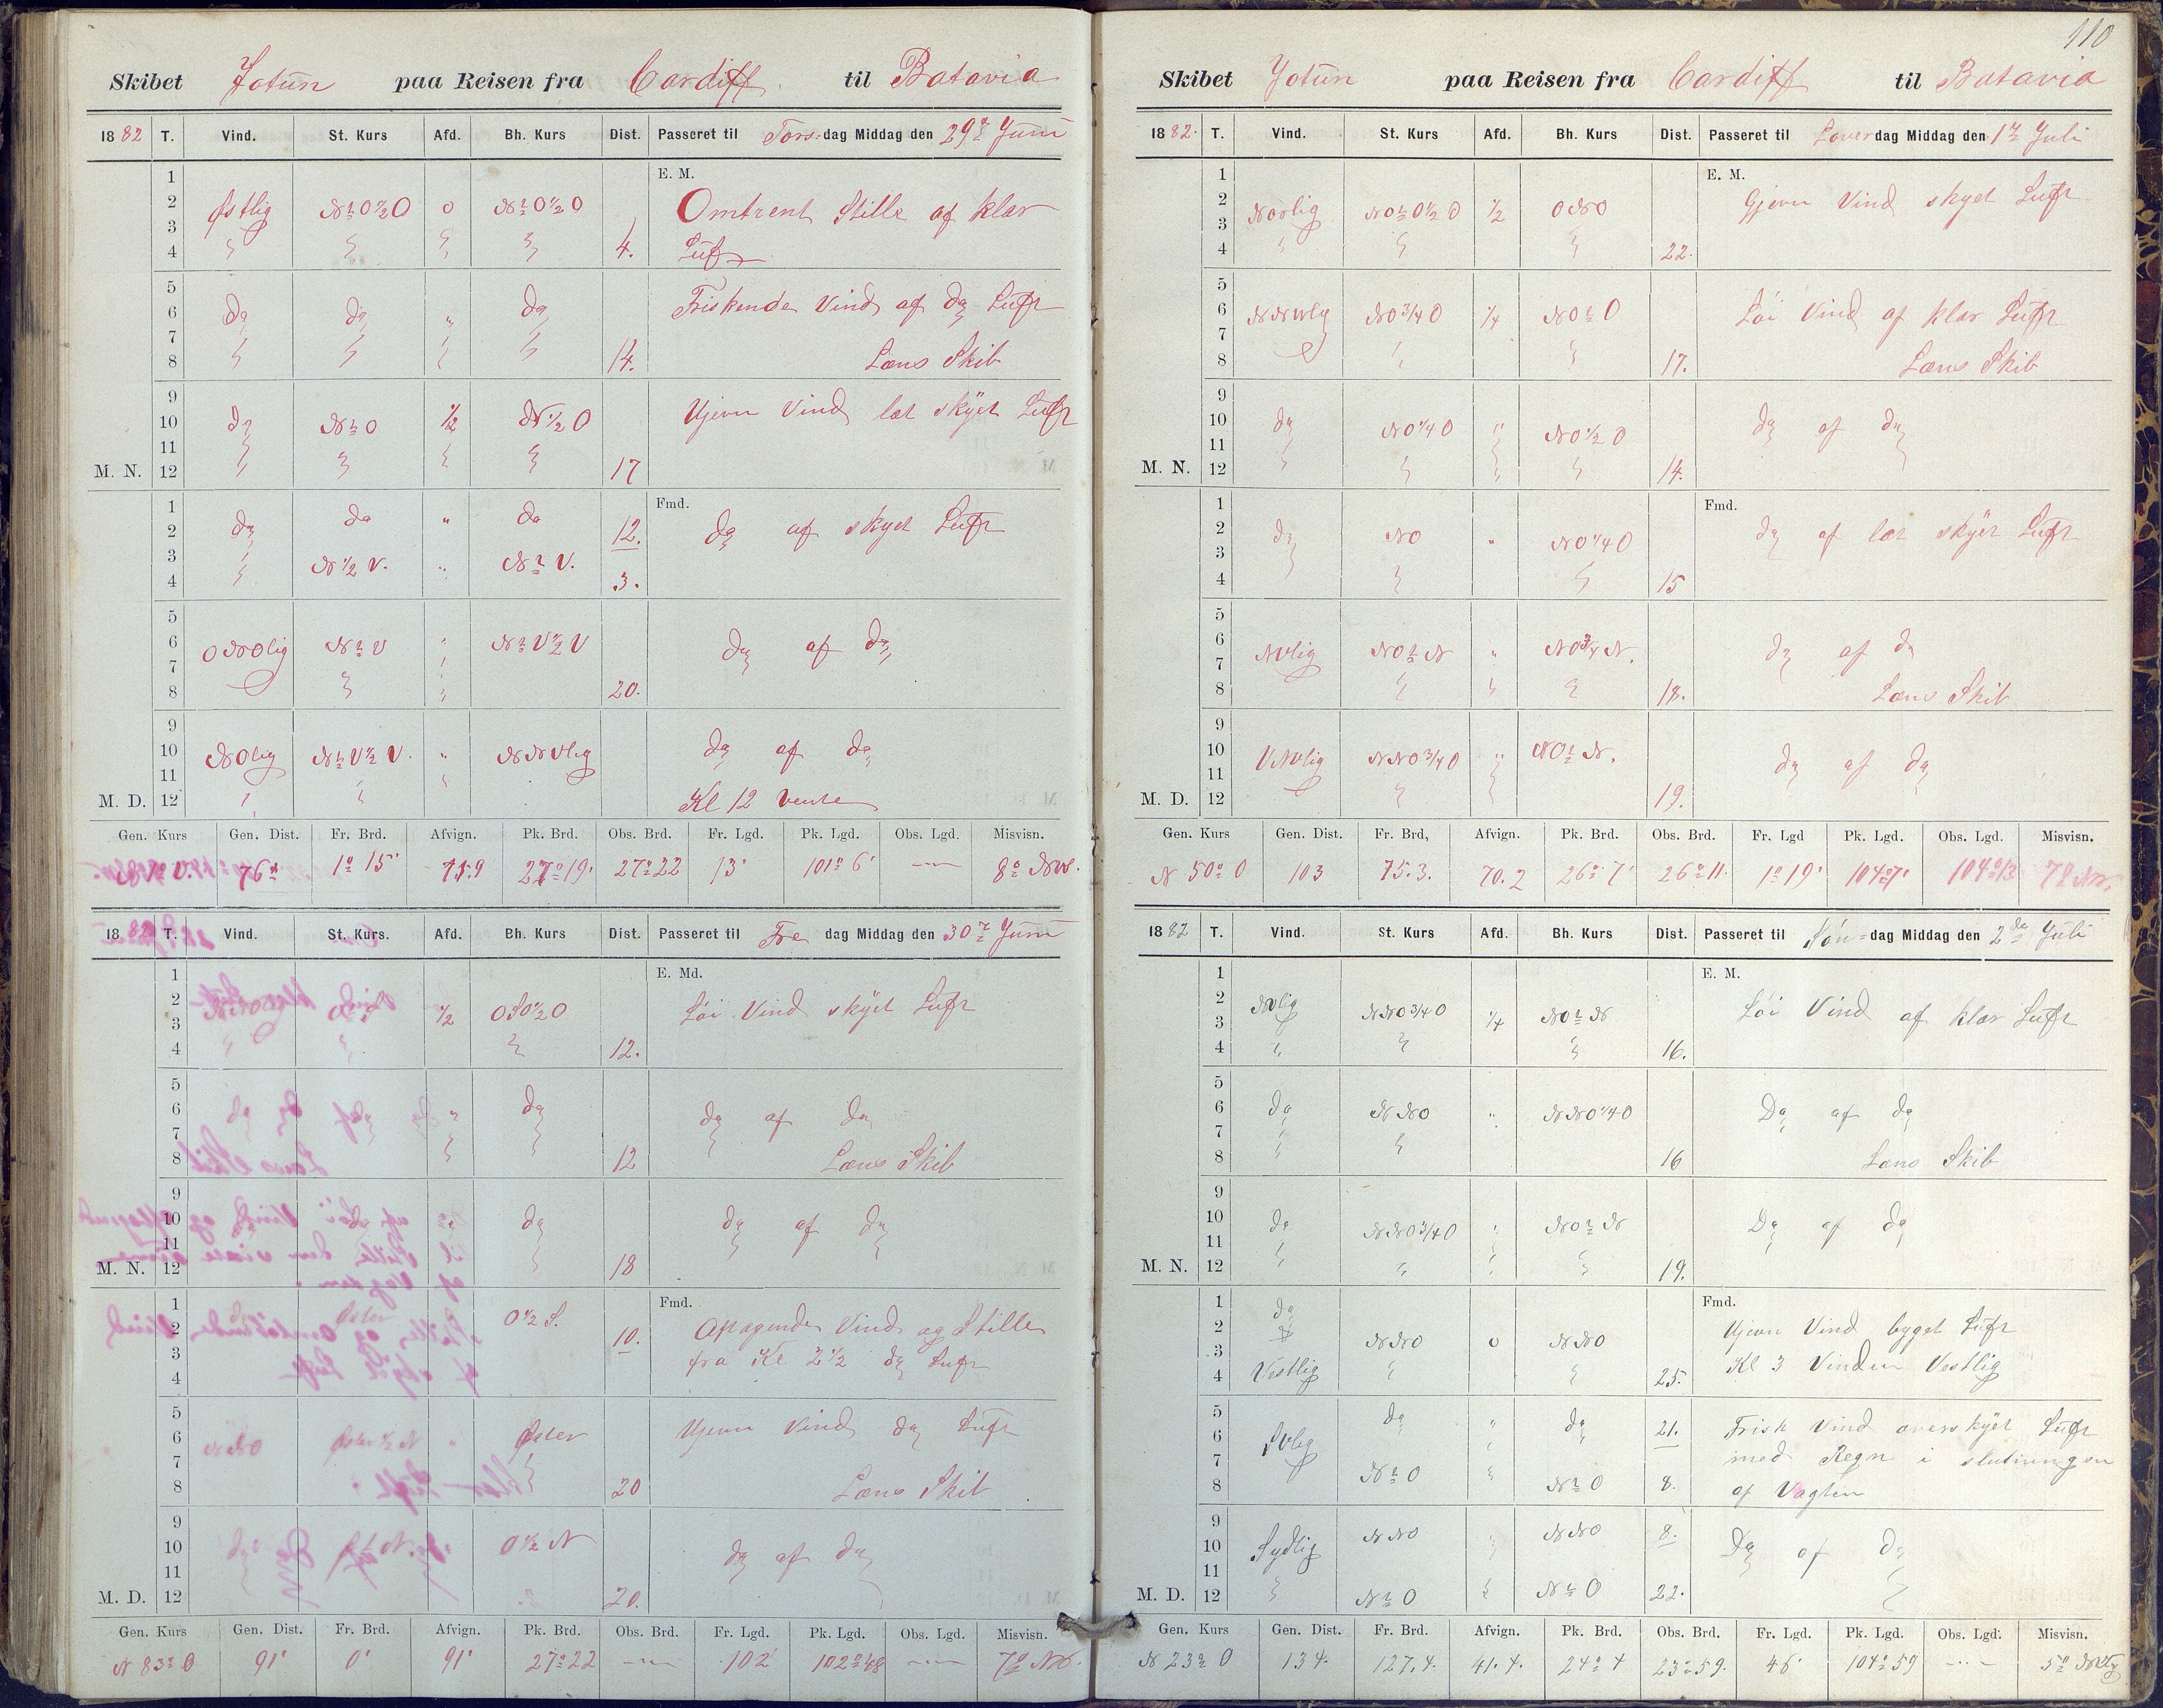 110
Skibet Jotun paa Reisen fra Cardiff til Batavia
1882 T. Vind. St. Kurs Afd. Bh. Kurs Dist. Passeret til Tors-dag Middag den 29de Juni
1 E. M.
2 Østlig NtO½O 0 NtO½O Omtrent Stille af klar
3
4 4. Luft
5
6 do do " do Friskende Vind af do Luft
7
8 14. Læns Skib
9
10 do NtO ½ N½O Ujevn Vind let skyet Luft
11
M. N. 12 17
1 Fmd.
2 do do " do 12. do af skyet Luft
3 N½V. " NtV.
4 3.
5
6 ONOlig NtV " NtV½V do af do
7
8 20.
9
10 NOlig NtV½V. " NNVlig do af do
11
M. D. 12 Kl 12 vente
Gen. Kurs Gen. Dist. Fr. Brd. Afvign. Pk. Brd. Obs. Brd. Fr. Lgd. Pk. Lgd. Obs. Lgd. Misvisn.
76 1° 15' 27° 19' 27° 22 13' 101° 6' 8° NV.
1882 T. Vind. St. Kurs. Afd. Bh. Kurs Dist. Passeret til Fre dag Middag den 30te Juni
1 E. Md.
2 ½ OSO½O Löi Vind skyet Luft
3
4 12.
5
6 " do do af do
7
8 12 Læns Skib
9
10 do " do do af do
11
M. N. 12 18
1 Fmd.
2 Øster O½S. 10. Aftagende Vind og Stille
3 fra Kl 2½ do Luft
4
5
6 NNO Øster½N " Øster Ujevn Vind do Luft
7
8 20 Læns Skib
9
10 do O½N do af do
11
M. D. 12 20.
Gen. Kurs Gen. Dist. Fr. Brd. Afvign. Pk. Brd. Obs. Brd. Fr. Lgd. Pk. Lgd. Obs. Lgd. Misvisn.
N 83° O 91' 0' 91' 27° 22 — 102' 102° 48 — 7° NV.
Skibet Jotun paa Reisen fra Cardiff til Batavia
1882. T. Vind. St. Kurs Afd. Bh. Kurs Dist. Passeret til Löverdag Middag den 1te Juli
1 E. M.
2 Norlig NOtO½O ½ ONO Gjevn Vind skyet Luft
3
4 22.
5
6 NNVlig NO¾O ¼ NOtO Löi Vind af klar Luft
7
8 17. Læns Skib
9
10 do NO¼O " NO½O do af do
11
M. N. 12 14.
1 Fmd.
2 do NO " NO¼O do af let skyet Luft
3
4 15
5
6 NVlig NOtN " NO¾N. do af do
7
8 18. Læns Skib
9
10 VNVlig NNO¾O " NOtN. do af do
11
M. D. 12 19.
Gen. Kurs Gen. Dist. Fr. Brd, Afvign. Pk. Brd. Obs. Brd. Fr. Lgd Pk. Lgd. Obs. Lgd. Misvisn.
N 50° O 103 75.3. 70.2 26° 7' 26° 11. 1° 19' 104° 7' 104° 13 7° NV.
1882 T. Vind. St. Kurs Afd. Bh. Kurs Dist. Passeret til Søn-dag Middag den 2de Juli
1 E. M.
2 NVlig NNO¾O ¼ NOtN Löi Vind af klar Luft
3
4 16.
5
6 do NNO " NNO¼O Do af do
7
8 16 Læns Skib
9
10 do NNO¾O " NOtN Do af do
11
M. N. 12 19.
1 do Fmd.
2 NNO 0 NNO Ujevn Vind byget Luft
3 Kl 3 Vinden Vestlig
4 Vestlig 25.
5 do " do 21. Frisk Vind overskyet Luft
6 SVlig
7 NtO med Regn i slutningen
8 NtO 8. af Vagten
9 NNO NNO 8.
10 Sydlig Do af do
11
M. D. 12 NtO NtO 22.
Gen. Kurs Gen. Dist. Fr. Brd. Afvign. Pk. Brd. Obs. Brd. Fr. Lgd. Pk. Lgd. Obs. Lgd. Misvisn.
N 23° O 134. 127.4. 41.4. 24° 4 23° 59. 46' 104° 59 — 5° NVlig